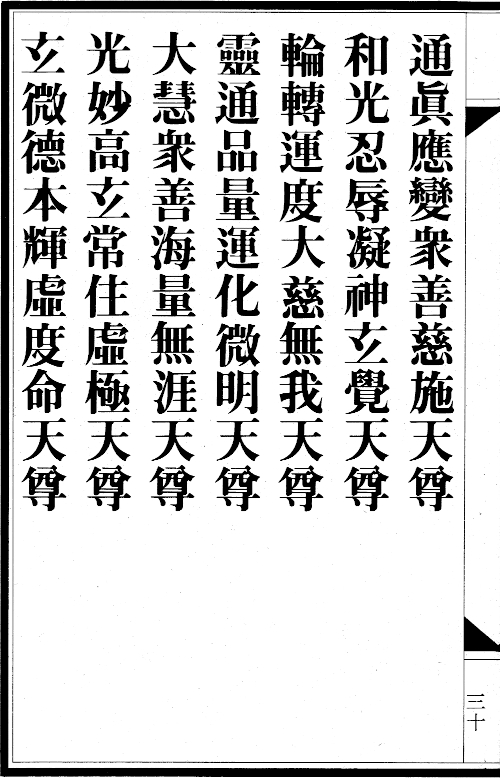 通眞應變衆善慈施天尊
和光忍辱凝神玄覺天尊
輪轉運度大慈無我天尊
靈通品量運化微明天尊
大慧衆善海量無涯天尊
光妙高玄常住虛極天尊
玄微德本輝虛度命天尊
三十